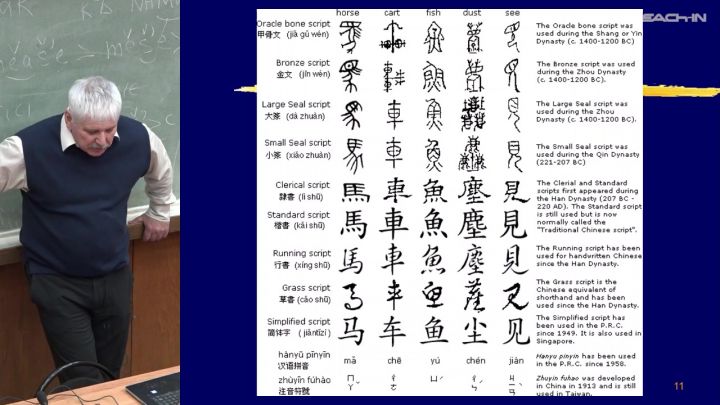 horse cart fish dust see
Oracle bone script
甲骨文 (jiǎ gú wén)
The Oracle bone script was
used during the Shang or Yin
Dynasty (c. 1400-1200 BC)
Bronze script
金文 (jīn wén)
The Bronze script was used
during the Zhou Dynasty
(c. 1400-1200 BC).
Large Seal script
大篆 (dà zhuàn)
The Large Seal script was
used during the Zhou
Dynasty (c. 1400-1200 BC).
Small Seal script
小篆 (xiǎo zhuàn)
The Small Seal script was
used during the Qin Dynasty
(221-207 BC)
Clerical script
隸書 (lì shū)
馬 車 魚 塵 見
The Clerial and Standard
scripts first appeared during
the Han Dynasty (207 BC -
220 AD). The Standard script
is still used but is now
normally called the
"Traditional Chinese script".
Standard script
楷書 (kǎi shū)
馬 車 魚 塵 見
Running script
行書 (xíng shū)
馬 車 魚 塵 見
The Running script has been
used for handwritten Chinese
since the Han Dynasty.
Grass script
草書 (cǎo shū)
The Grass script is the
Chinese equivalent of
shorthand and has been
used since the Han Dynasty.
Simplified script
简体字 (jiǎntǐzì)
马 车 鱼 尘 见
The Simplified script has
been used in the P.R.C.
since 1949. It is also used in
Singapore.
hànyǔ pīnyīn
汉语拼音
mǎ chē yú chén jiàn
Hanyu pinyin has been used
in the P.R.C. since 1958.
zhùyīn fúhào
注音符號
Zhuyin fuhao was developed
in China in 1913 and is still
used in Taiwan.
11